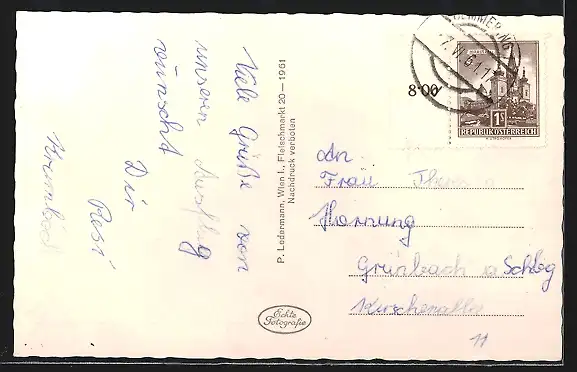 Viele Grüße von
unseren Ausflug
wünscht
Dir
Resi
P. Ledermann, Wien I., Fleischmarkt 20 — 1961
Nachdruck verboten
Echte
Fotografie
SEMMERING
7.VI.61.1
8·00
1S
REPUBLIK ÖSTERREICH
An
Frau
Hornung
Grünbach a Schbg
11